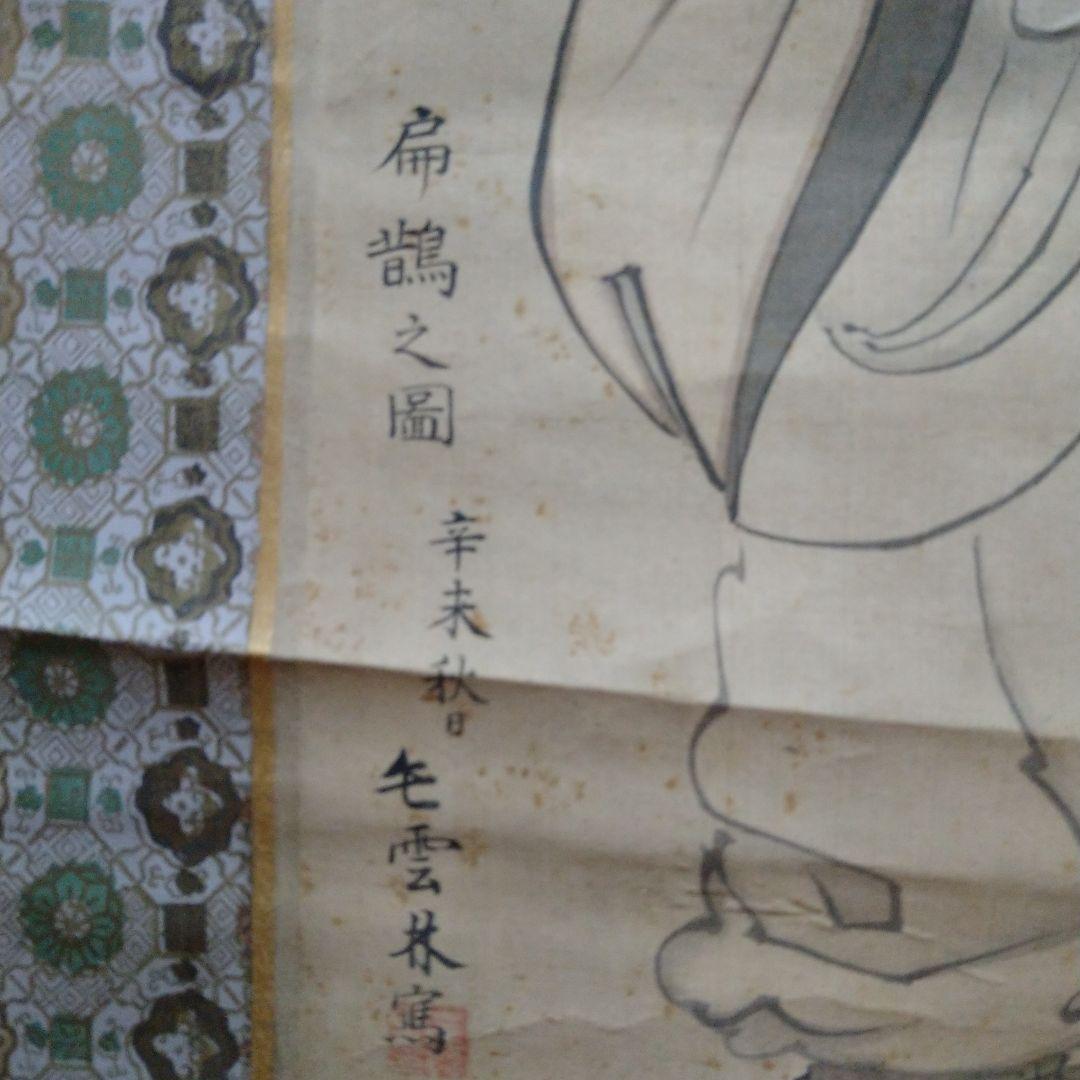 扁鵲之圖
辛未秋日
毛雲林寫